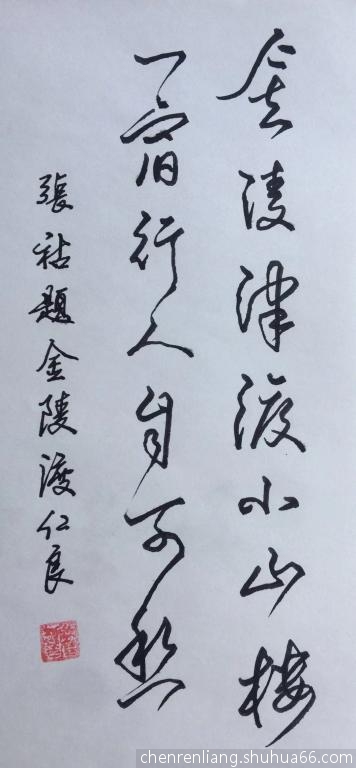 金陵津渡小山楼
一宿行人自可愁
張祜題金陵渡仁良
chenrenliang.shuhua66.com